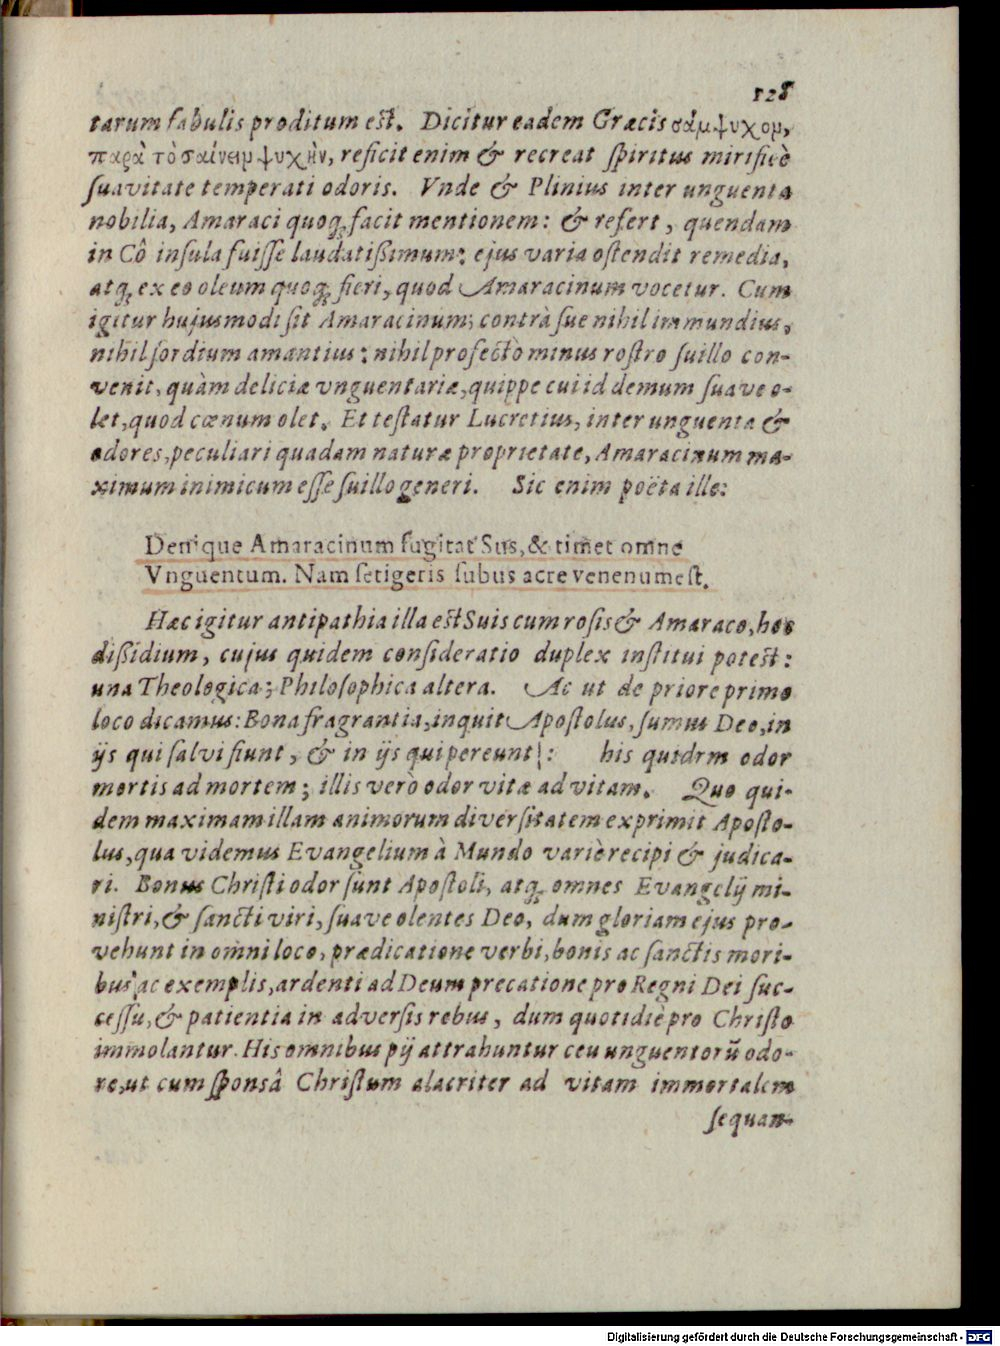 128
tarum fabulis proditum est. Dicitur eadem Græcis σάμψυχομ,
παρὰ τὸ σαίνειμ ψυχὴν, reficit enim & recreat spiritus mirificè
suavitate temperati odoris. Vnde & Plinius inter unguenta
nobilia, Amaraci quoq; facit mentionem: & refert, quendam
in Cô insula fuisse laudatißimum: ejus varia ostendit remedia,
atq; ex eo oleum quoq; fieri, quod Amaracinum vocetur. Cum
igitur hujusmodi sit Amaracinum; contrà sue nihil immundius,
nihil sordium amantius: nihil profectò minus rostro suillo con-
venit, quàm deliciæ vnguentariæ, quippe cui id demum suave o-
let, quod cœnum olet. Et testatur Lucretius, inter unguenta &
odores, peculiari quadam naturæ proprietate, Amaracinum ma-
ximum inimicum esse suillo generi. Sic enim poëta ille:
Denique Amaracinum fugitat Sus, & timet omne
Vnguentum. Nam setigeris subus acre venenum est.
Hæc igitur antipathia illa est Suis cum rosis & Amaraco, hoc
dißidium, cujus quidem consideratio duplex institui potest:
una Theologica; Philosophica altera. Ac ut de priore primo
loco dicamus: Bona fragrantia, inquit Apostolus, sumus Deo, in
ijs qui salvi fiunt, & in ijs qui pereunt: his quidrm odor
mortis ad mortem; illis verò odor vitæ ad vitam. Quo qui-
dem maximam illam animorum diversitatem exprimit Aposto-
lus, qua videmus Evangelium à Mundo variè recipi & judica-
ri. Bonus Christi odor sunt Apostoli, atq; omnes Evangelij mi-
nistri, & sancti viri, suave olentes Deo, dum gloriam ejus pro-
vehunt in omni loco, prædicatione verbi, bonis ac sanctis mori-
bus ac exemplis, ardenti ad Deum precatione pro Regni Dei suc-
cessu, & patientia in adversis rebus, dum quotidiè pro Christo
immolantur. His omnibus pij attrahuntur ceu unguentorū odo-
re, ut cum sponsâ Christum alacriter ad vitam immortalem
sequan-
Digitalisierung gefördert durch die Deutsche Forschungsgemeinschaft - DFG